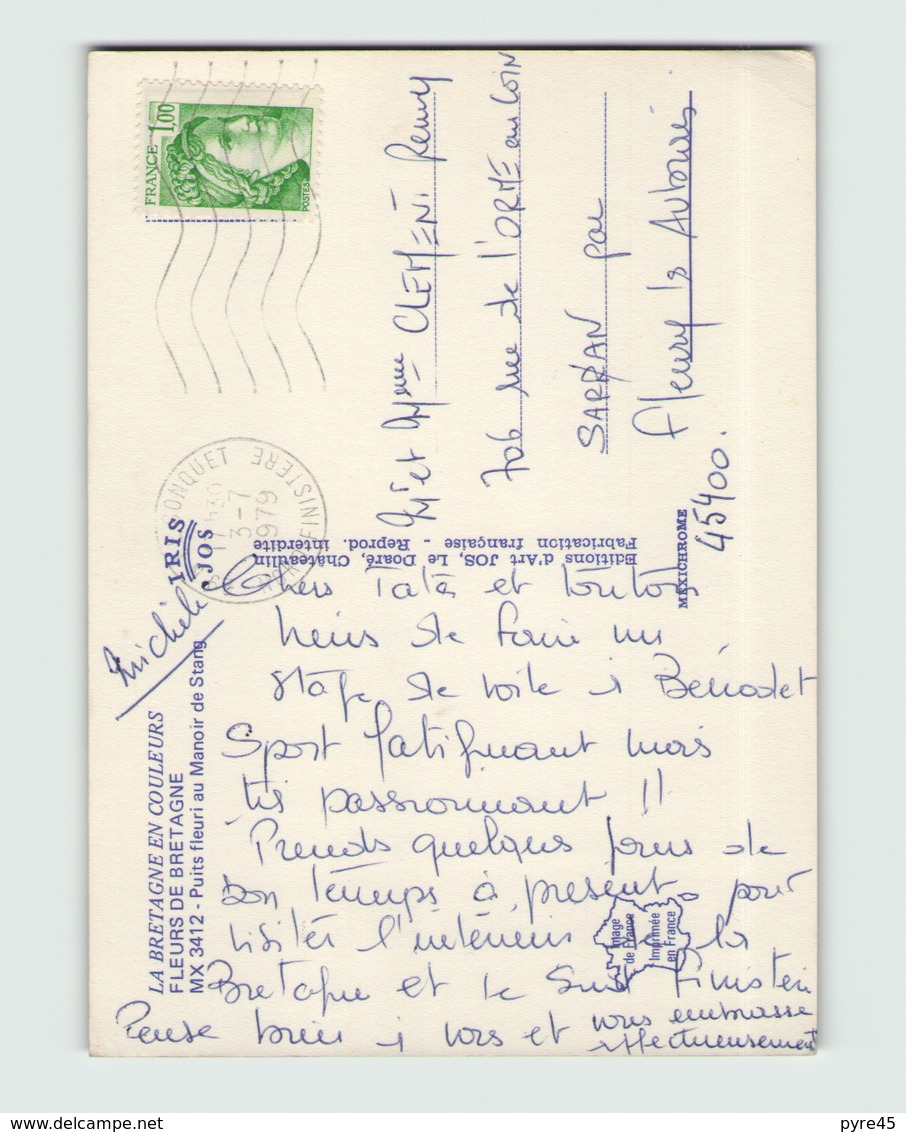 FRANCE 1,00
POSTES
ONQUET
17
3-7
1979
FINISTERE
IRIS
JOS
Michele
LA BRETAGNE EN COULEURS
FLEURS DE BRETAGNE
MX 3412 - Puits fleuri au Manoir de Stang
Editions d'Art JOS, Le Doaré, Châteaulin
Fabrication française - Reprod. interdite
MEXICHROME
Mr et Mme CLEMENT Remy
706 rue de l'ORME au COIN
SARRAN par
Fleury ls Aubrais
45400.
Chers Tata et tonton
Viens de faire un
stage de voile à Bénodet
Sport fatiguant mais
très passionnant !!
Prends quelques jours de
bon temps à présent pour
visiter l'intérieur de la
Bretagne et le Sud Finistère
Pense bien à vous et vous embrasse
affectueusement
Image
de France
Imprimée
en France
pyre45